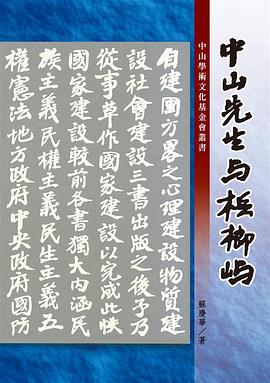 中山先生与梹榔屿
中山學術文化基金會叢書
蘇慶華／著
自建國方畧之心理建設物質建
設社會建設三書出版之後予乃
從事草作國家建設以完成此帙
國家建設較前各書獨大内涵民
族主義民權主義民生主義五
權憲法地方政府中央政府國防